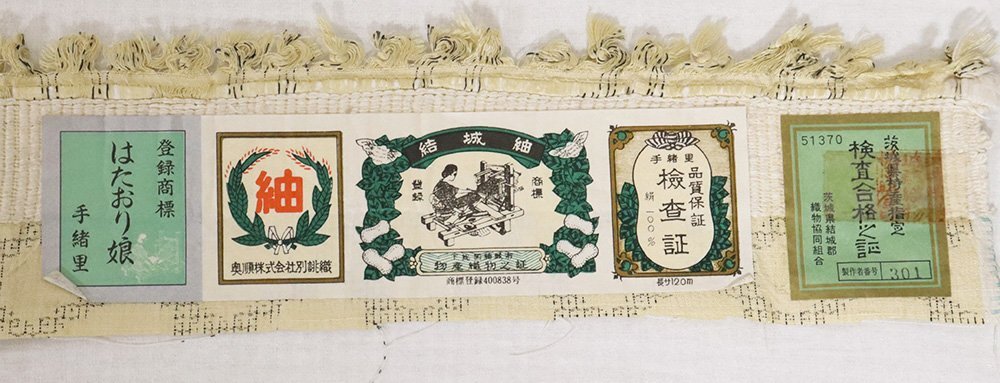 登録商標
はたおり娘
手緒里
紬
奥順株式会社別誂織
結城紬
登録
商標
物産織物之証
商標登録400838号
手緒里
品質保証
検査証
絹一〇〇%
長サ12.0m
51370
検査合格之証
茨城県結城郡
織物協同組合
製作者番号 301